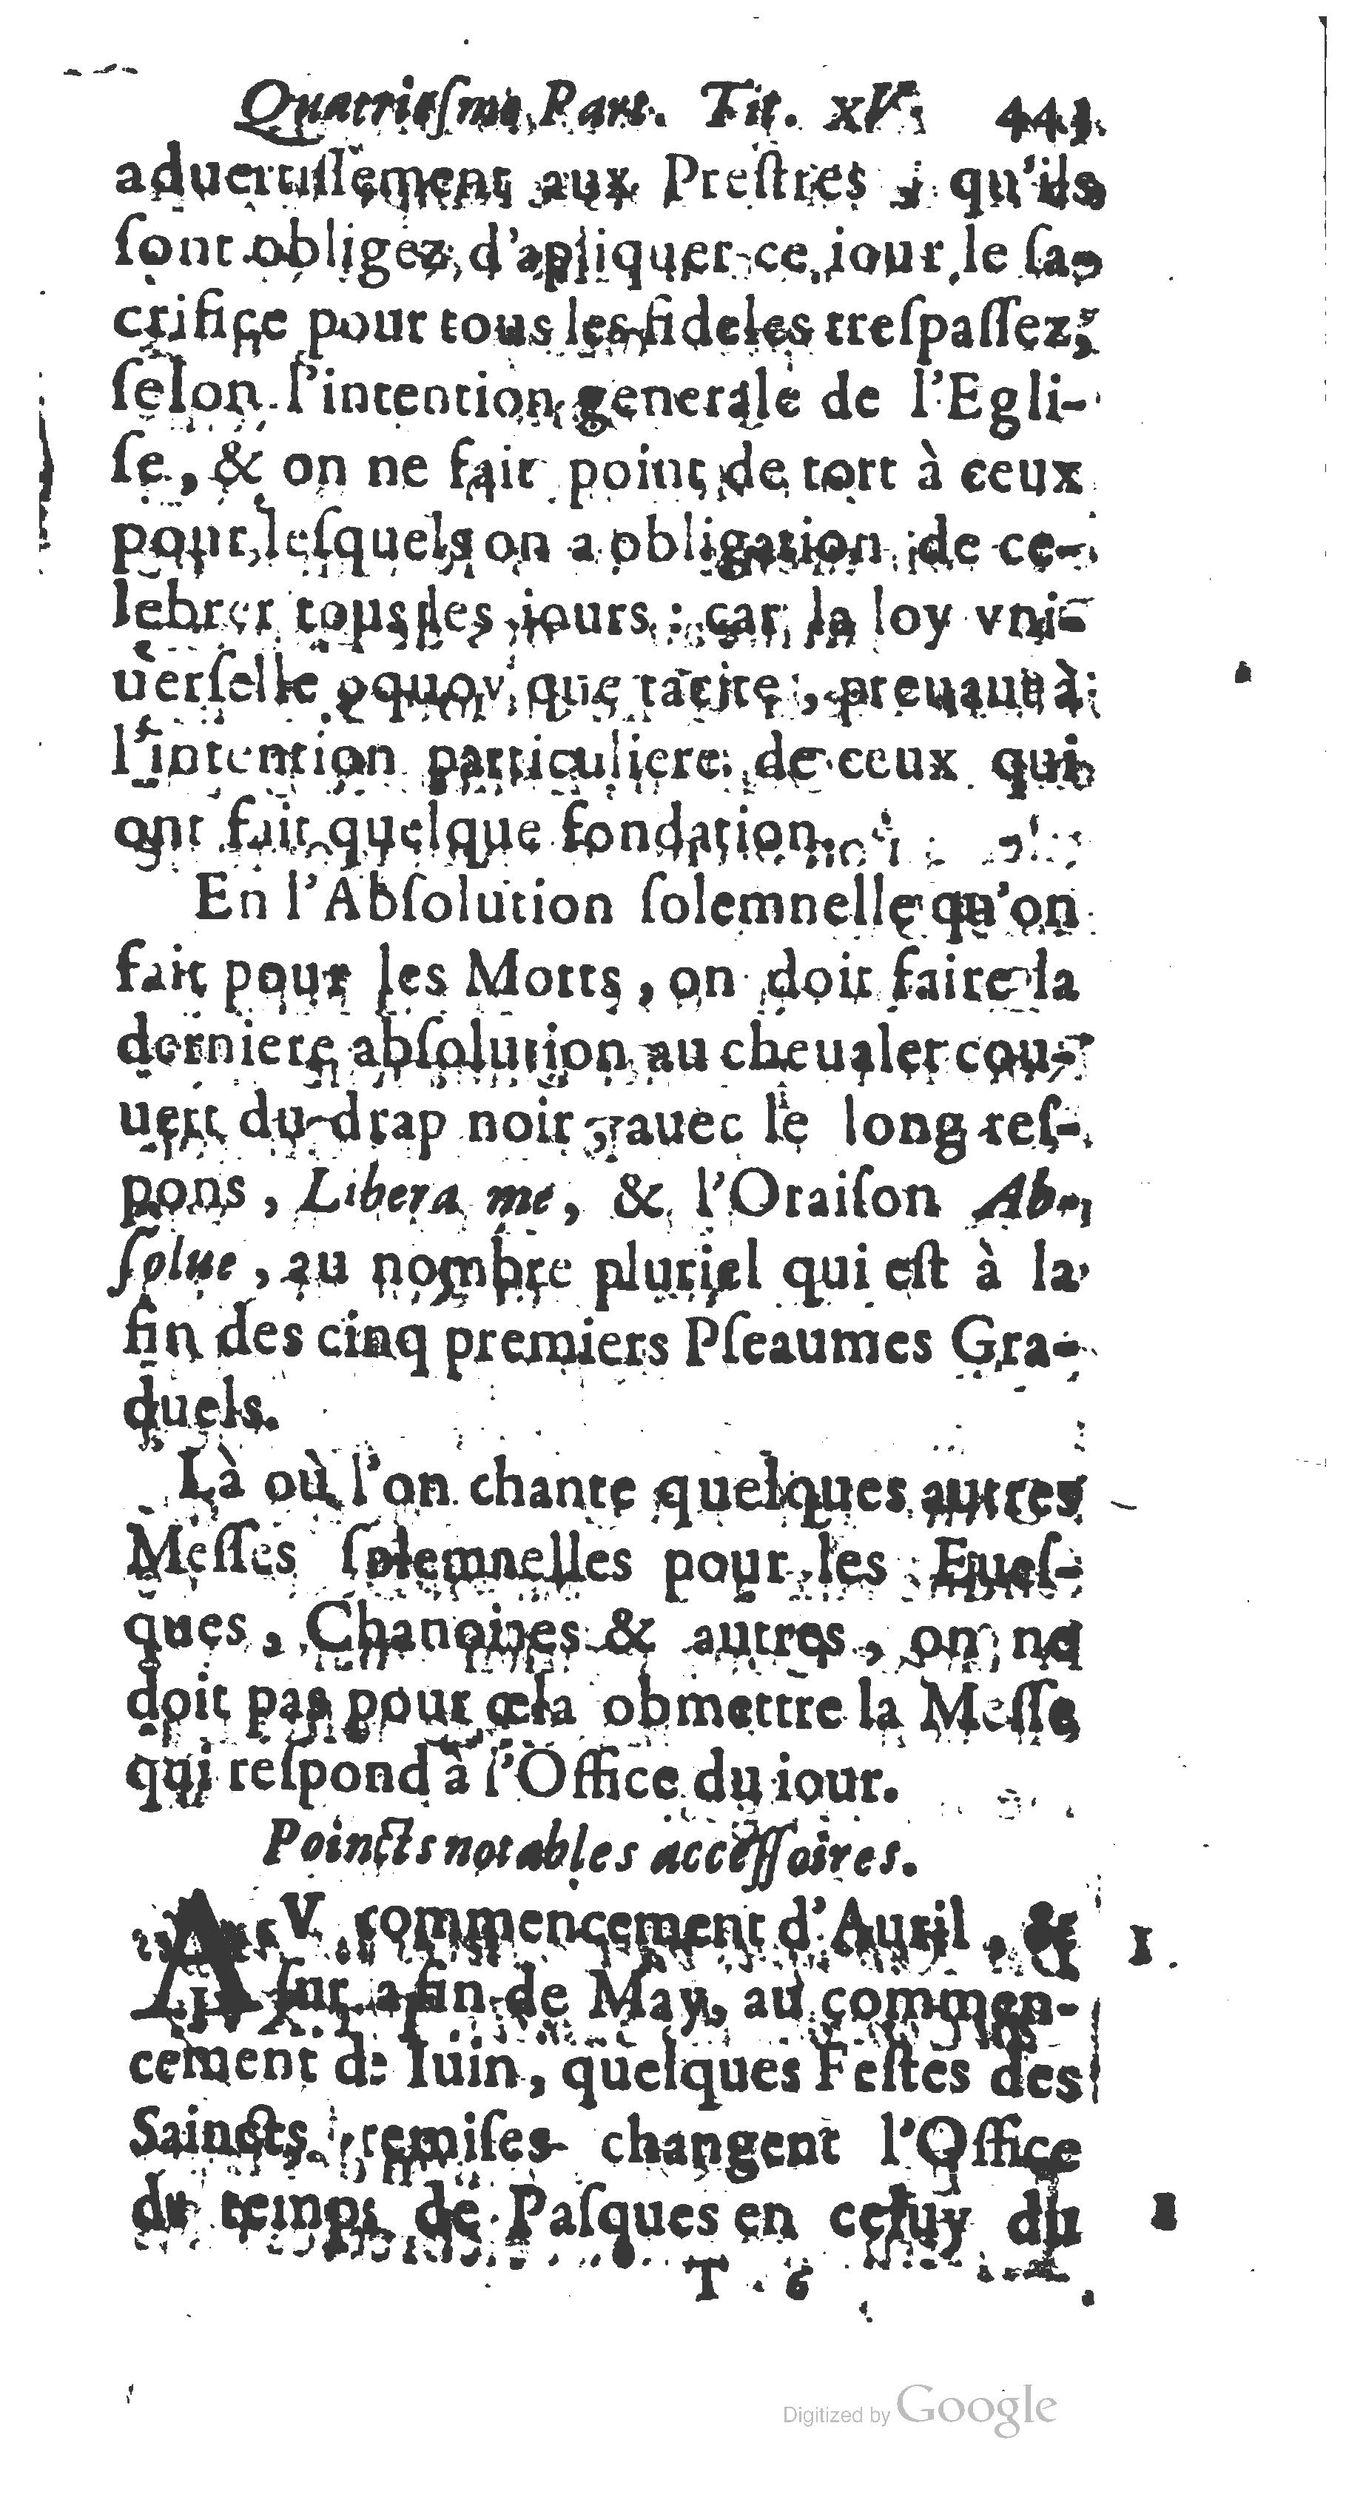 Quatrieſme Part. Tit. XV. 443
aduertiſſement aux Preſtres, qu'ils
ſont obligez d'apliquer ce iour le ſa-
crifice pour tous les fideles treſpaſſez,
ſelon l'intention generale de l'Egli-
ſe, & on ne fait point de tort à ceux
pour leſquels on a obligation de ce-
lebrer tous les iours : car la loy vni-
uerſelle quoy que tacite, preuaut à
l'intention particuliere de ceux qui
ont fait quelque fondation.
En l'Abſolution ſolemnelle qu'on
fait pour les Morts, on doit faire la
derniere abſolution au cheualet cou-
uert du drap noir, auec le long reſ-
pons, Libera me, & l'Oraiſon Ab-
ſolue, au nombre pluriel qui eſt à la
fin des cinq premiers Pſeaumes Gra-
duels.
Là où l'on chante quelques autres
Meſſes ſolemnelles pour les Eueſ-
ques, Chanoines & autres, on ne
doit pas pour cela obmettre la Meſſe
qui reſpond à l'Office du iour.
Poincts notables acceſſoires.
AV commencement d'Auril, &
ſur la fin de May, au commen-
cement de Iuin, quelques Feſtes des
Saincts remiſes changent l'Office
du temps de Paſques en celuy du
T 6
Digitized by Google